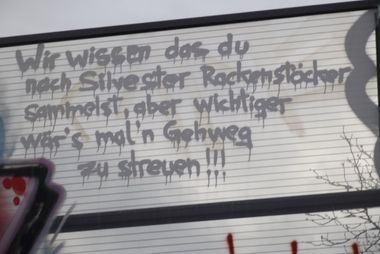 Wir wissen das du
nach Silvester Rackenstöcker
sammelst, aber wichtiger
wär's mal'n Gehweg
zu streuen!!!